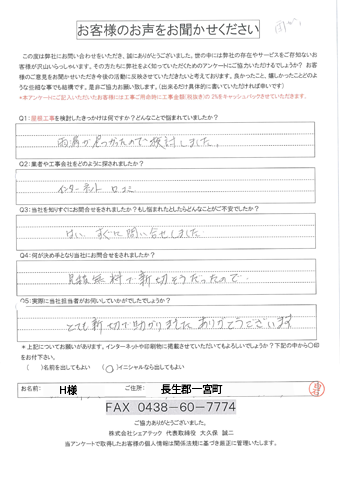 お客様のお声をお聞かせください
この度は弊社にお問い合わせをいただき、誠にありがとうございました。世の中には弊社の存在やサービスをご存知ないお
客様が沢山いらっしゃいます。その方たちに弊社をよく知っていただくためのアンケートにご協力いただけるでしょうか? お客
様のご意見をお聞かせいただき今後の活動に反映させていただきたいと考えております。良かったこと、嬉しかったことどのよ
うな些細な事でも結構です。是非ご協力お願い致します。(出来るだけ具体的に書いていただければ幸いです)
*本アンケートにご記入いただいたお客様には工事ご用命時に工事金額(税抜き)の2%をキャッシュバックさせていただきます。
Q1:屋根工事を検討したきっかけは何ですか?どんなことで悩まれていましたか?
雨漏が見つかったので検討しました。
Q2:業者や工事会社をどのように探されましたか?
インターネット 口コミ
Q3:当社を知りすぐにお問合せをされましたか?もし悩まれたとしたらどんなことがご不安でしたか?
はい、すぐに問い合せしました
Q4:何が決め手となり当社にお問合せされましたか?
見積無料で親切そうだったので
Q5:実際に当社担当者がお伺いしていかがでしたでしょうか?
とても親切で助かりました ありがとうございます
*上記についてお願いがあります。インターネットや印刷物に掲載させていただいてもよろしいでしょうか?下記の中から〇印
をお付下さい。
( )名前を出してもよい (〇)イニシャルなら出してもよい
お名前: H様 ご住所: 長生郡一宮町
FAX 0438-60-7774
ご協力ありがとうございました。
株式会社シェアテック 代表取締役 大久保 誠二
当アンケートで取得したお客様の個人情報は関係法規に基づき厳正に管理いたします。